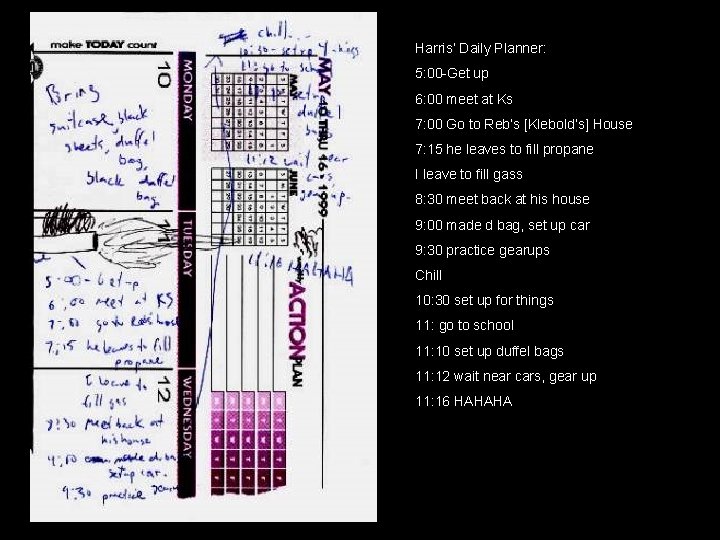 chill...
make TODAY count
10:30 - set up 4 things
11: go to school
10
MONDAY
MAY
MAY 10 THRU 16 1999
JUNE
Bring
suitcase, black
sheets, duffel
bag,
black duffel
bag
set up
duffel
bags
11:12 wait near
cars
gear up.
11:16 HAHAHA
11
TUESDAY
5:00 - Get up
6:00 meet at KS
7:00 go to Reb's house
7:15 he leaves to fill
propane
I leave to
fill gas
8:30 meet back at
his house
9:00 made d. bag
set up car.
9:30 practice gearups
12
WEDNESDAY
weekly
ACTION
PLAN
Harris' Daily Planner:
5:00-Get up
6:00 meet at Ks
7:00 Go to Reb's [Klebold's] House
7:15 he leaves to fill propane
I leave to fill gass
8:30 meet back at his house
9:00 made d bag, set up car
9:30 practice gearups
Chill
10:30 set up for things
11: go to school
11:10 set up duffel bags
11:12 wait near cars, gear up
11:16 HAHAHA